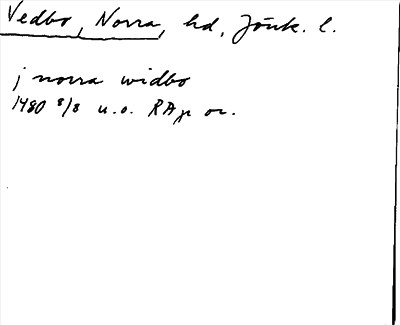 Vedbo, Norra, hd, Jönk. l.
j norra widbo
1480 8/8 u.o. RAp or.